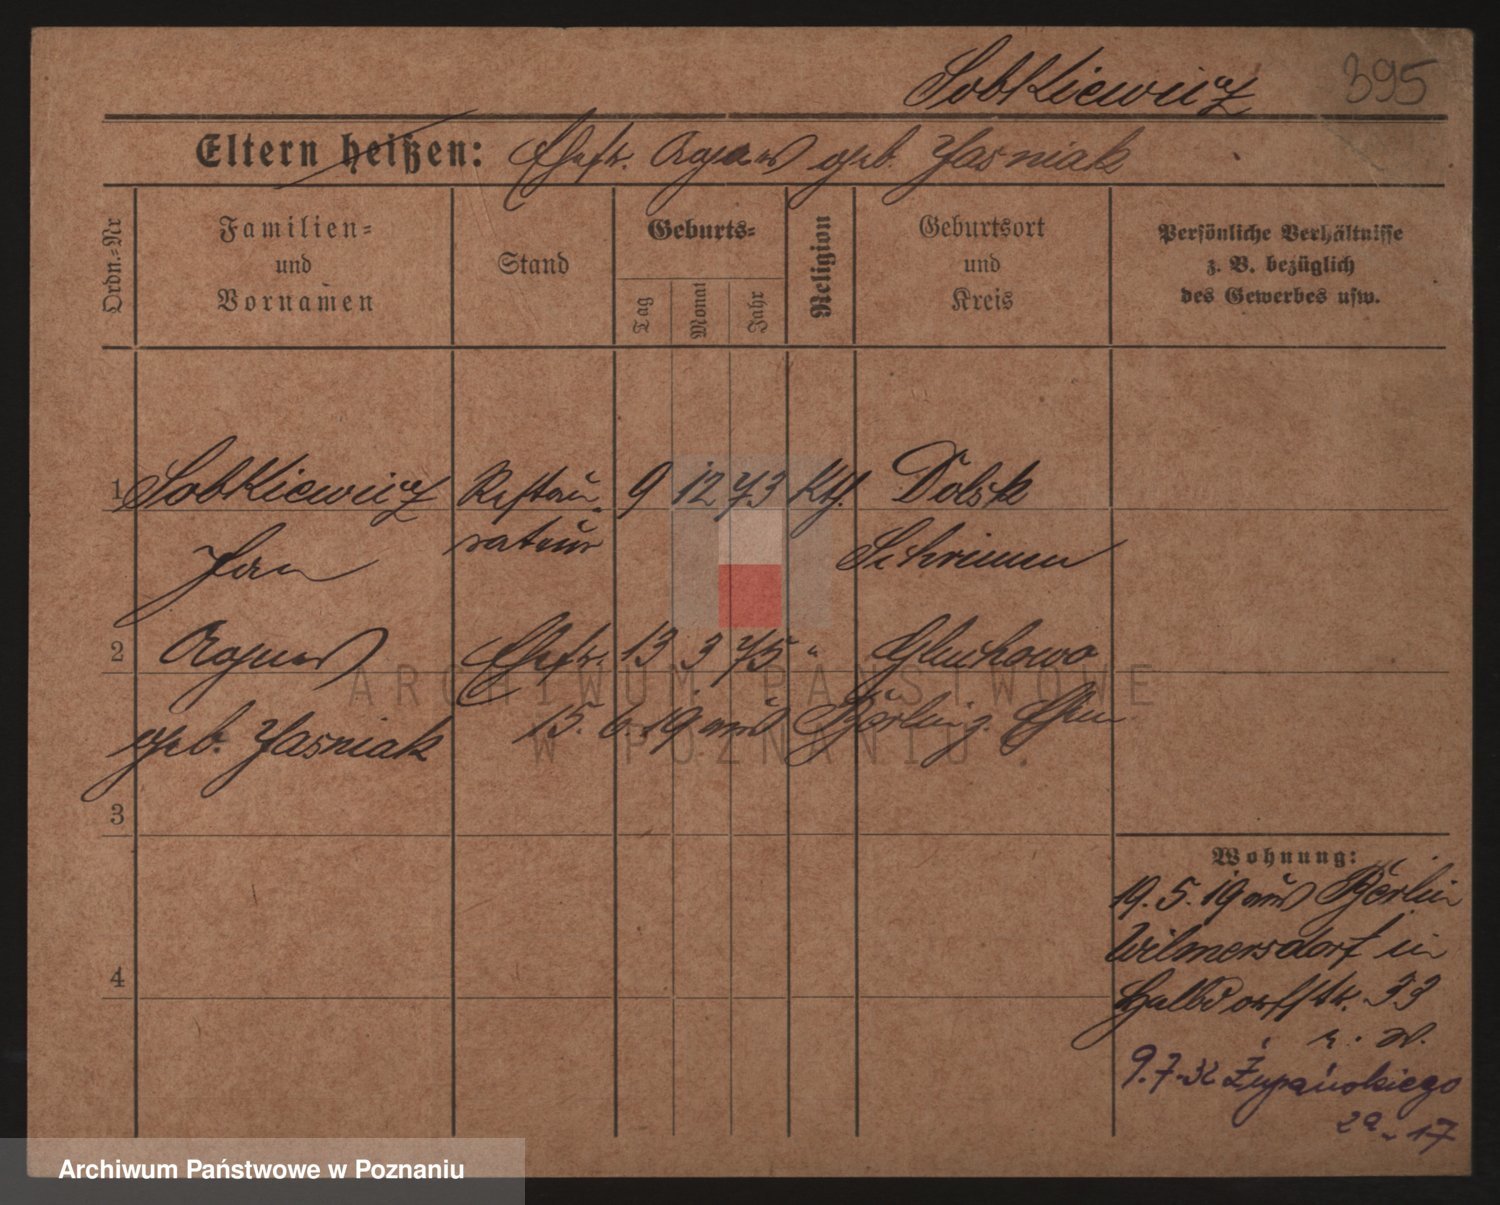 Sobkiewicz 395
Eltern heißen: Ehefr. Agnes geb. Jasniak
Ordn.-Nr
Familien-
und
Vornamen
Stand
Geburts-
Tag
Monat
Jahr
Religion
Geburtsort
und
Kreis
Persönliche Verhältnisse
z. B. bezüglich
des Gewerbes usw.
1 Sobkiewicz Restau- 9 12 73 Kth. Dolsk
Jan rateur Schrimm
2 Agnes Ehefr. 13 3 75 " Gluchowo
geb. Jasniak 15. 6. 19 aus Berlin z. Ehem
3
4
Wohnung:
19. 5. 19 aus Berlin
Wilmersdorf in
Halbdorffstr. 33
9.7.32 Żupańskiego
2a 17
ARCHIWUM PAŃSTWOWE
W POZNANIU
Archiwum Państwowe w Poznaniu